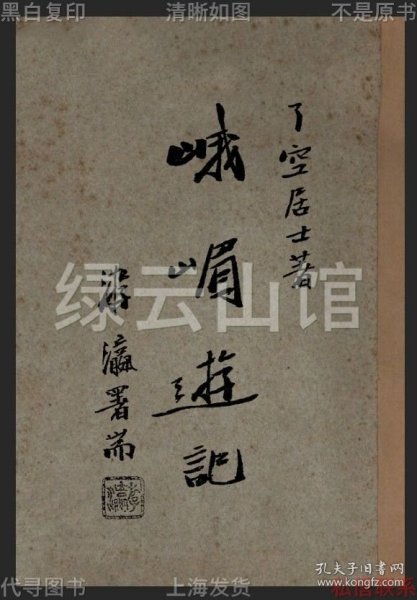 黑白复印 清晰如图 不是原书
了空居士著
峨嵋遊記
瀛署耑
绿云山馆
孔夫子旧书网
代寻图书 上海发货 私信联系